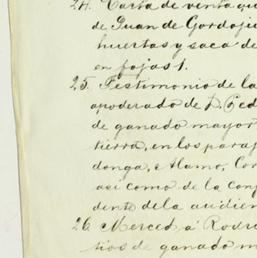 24. Carta de venta que
de Juan de Gordeju
huertas y saca de
en fojas 1.
25. Testimonio de la
apoderado de D. Ped
de ganado mayor
tierra, en los paraj
donga, Alamo, Cor
asi como de la conf
dente de la audien
26. Merced á Rodri
tios de ganado m